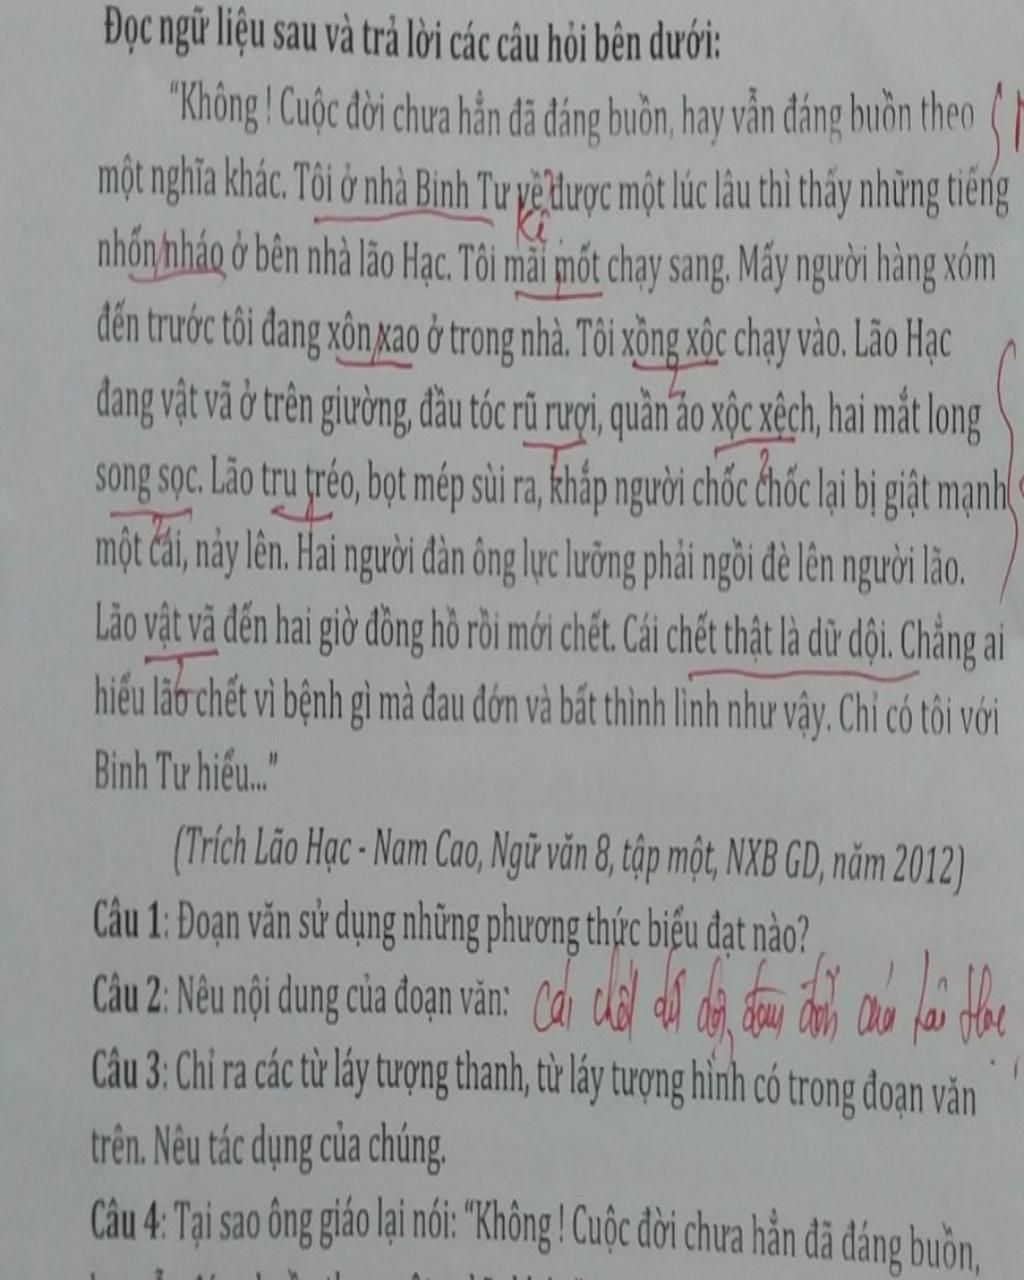 Đọc ngữ liệu sau và trả lời các câu hỏi bên dưới:
“Không ! Cuộc đời chưa hẳn đã đáng buồn, hay vẫn đáng buồn theo
một nghĩa khác. Tôi ở nhà Binh Tư về được một lúc lâu thì thấy những tiếng
kể
nhốn nháo ở bên nhà lão Hạc. Tôi mãi mốt chạy sang. Mấy người hàng xóm
đến trước tôi đang xôn xao ở trong nhà. Tôi xồng xộc chạy vào. Lão Hạc
đang vật vã ở trên giường, đầu tóc rũ rượi, quần áo xộc xệch, hai mắt long
song sọc. Lão tru tréo, bọt mép sùi ra, khắp người chốc chốc lại bị giật mạnh
một cái, nảy lên. Hai người đàn ông lực lưỡng phải ngồi đè lên người lão.
Lão vật vã đến hai giờ đồng hồ rồi mới chết. Cái chết thật là dữ dội. Chẳng ai
hiểu lão chết vì bệnh gì mà đau đớn và bất thình lình như vậy. Chỉ có tôi với
Binh Tư hiểu...”
(Trích Lão Hạc - Nam Cao, Ngữ văn 8, tập một, NXB GD, năm 2012)
Câu 1: Đoạn văn sử dụng những phương thức biểu đạt nào?
Câu 2: Nêu nội dung của đoạn văn: Cái chết dữ dội, đau đớn của Lão Hạc
Câu 3: Chỉ ra các từ láy tượng thanh, từ láy tượng hình có trong đoạn văn
trên. Nêu tác dụng của chúng.
Câu 4: Tại sao ông giáo lại nói: “Không ! Cuộc đời chưa hẳn đã đáng buồn,